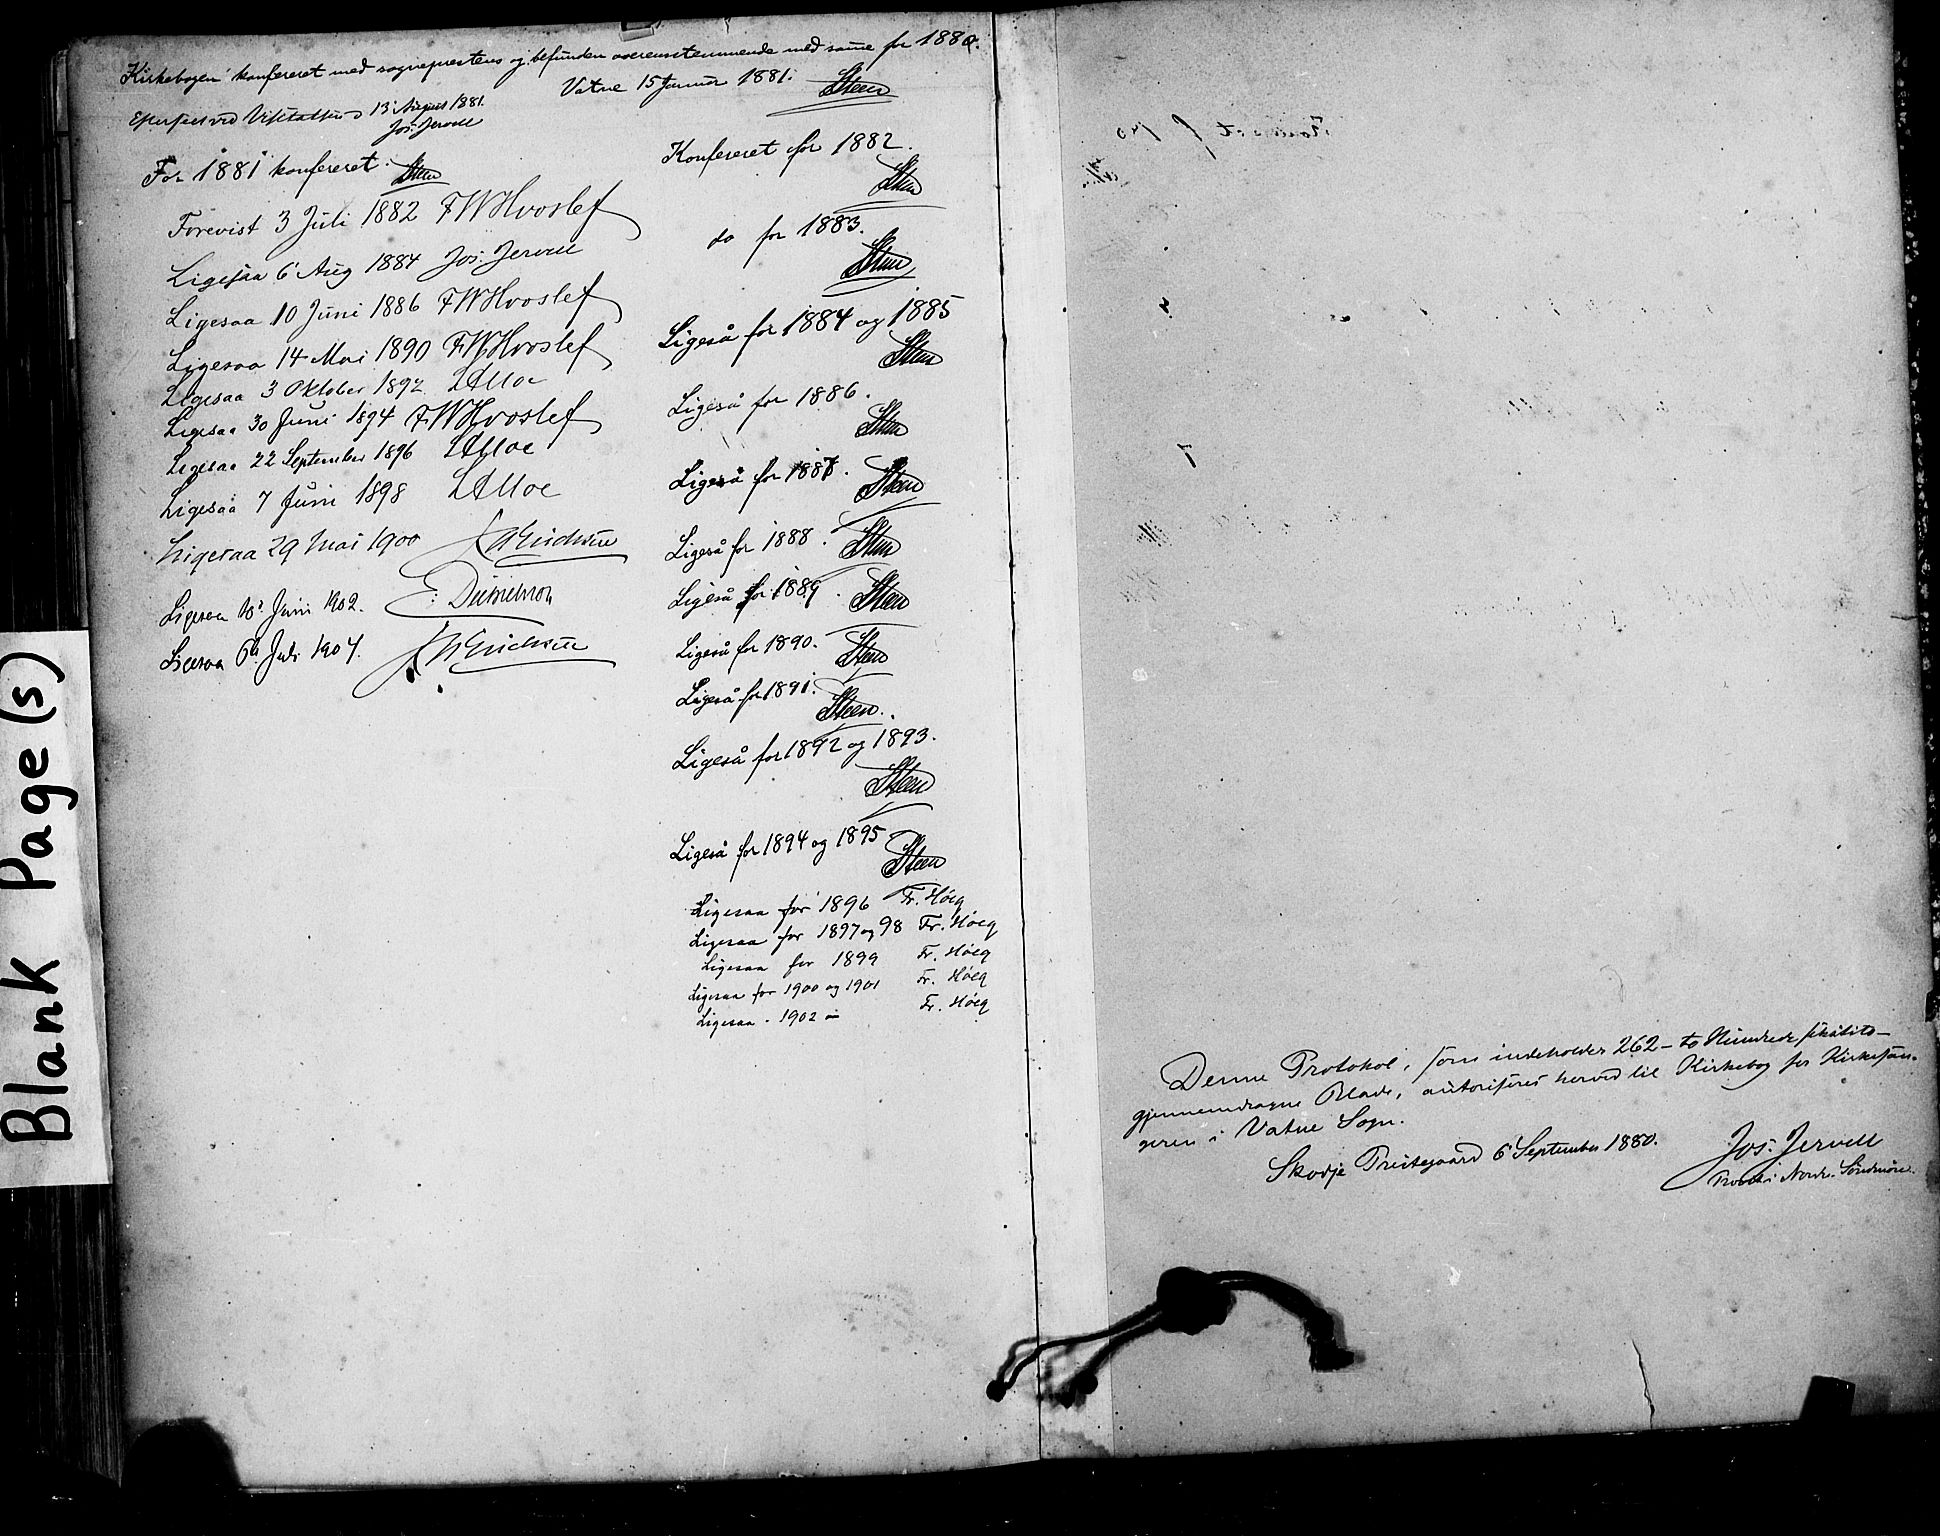 Kirkebogen konfereret med sogneprestens og befunden overensstemmende med samme for 1880.
Vatne 15 Januar 1881. Steen
Efterseet ved Visitatsen 13 August 1881.
Jos: Jervell
For 1881 konfereret. Steen
Forevist 3 Juli 1882 FWHvoslef
Ligesaa 6 Aug 1884 Jos: Jervell
Ligesaa 10 Juni 1886 FWHvoslef
Ligesaa 14 Mai 1890 FWHvoslef
Ligesaa 3 Oktober 1892 Moe
Ligesaa 30 Juni 1894 FWHvoslef
Ligesaa 22 September 1896 Moe
Ligesaa 7 Juni 1898 Moe
Ligesaa 29 Mai 1900
Ligesaa Juni 1902.
Ligesaa Juli 1904.
Konfereret for 1882.
Steen
do for 1883.
Steen
Ligeså for 1884 og 1885
Steen
Ligeså for 1886.
Steen
Ligeså for 1887. Steen
Ligeså for 1888. Steen
Ligeså for 1889. Steen
Ligeså for 1890. Steen
Ligeså for 1891. Steen.
Ligeså for 1892 og 1893.
Steen
Ligeså for 1894 og 1895 Steen
Ligesaa for 1896 Fr. Höeg
Ligesaa for 1897 og 98 Fr. Höeg
Ligesaa for 1899 Fr. Höeg
Ligesaa for 1900 og 1901 Fr. Höeg
Ligesaa - 1902 - Fr. Höeg
Blank Page(s)
Denne Protokol, som indeholder 262 - to Hundrede
gjennemdragne Blade, autoriseres herved til Kirkebog for Kirkesan-
geren i Vatne Sogn.
Skodje Prestegaard 6 September 1880.
Jos: Jervell
Provst i Nordre Søndmøre.